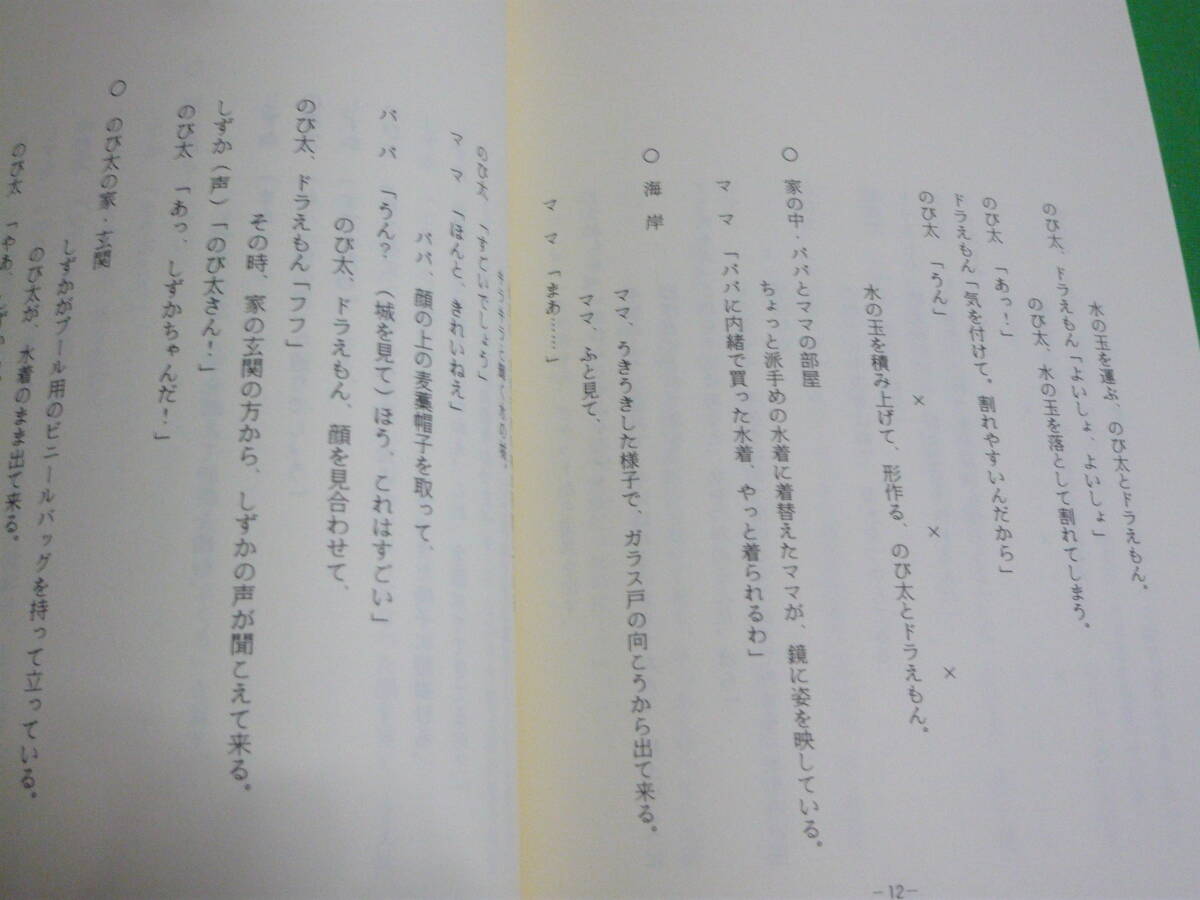 水の玉を運ぶ、のび太とドラえもん。
のび太、ドラえもん「よいしょ、よいしょ」
のび太、水の玉を落として割れてしまう。
のび太 「あっ！」
ドラえもん「気を付けて。割れやすいんだから」
のび太 「うん」
× × ×
水の玉を積み上げて、形作る、のび太とドラえもん。
○ 家の中・パパとママの部屋
ちょっと派手めの水着に着替えたママが、鏡に姿を映している。
ママ 「パパに内緒で買った水着、やっと着られるわ」
○ 海岸
ママ、うきうきした様子で、ガラス戸の向こうから出て来る。
ママ、ふと見て、
ママ 「まあ……」
-12-
のび太 「すごいでしょう」
ママ 「ほんと、きれいねえ」
パパ、顔の上の麦藁帽子を取って、
パパ 「うん？ （城を見て）ほう、これはすごい」
のび太、ドラえもん、顔を見合わせて、
のび太、ドラえもん「フフ」
その時、家の玄関の方から、しずかの声が聞こえて来る。
しずか（声）「のび太さん！」
のび太 「あっ、しずかちゃんだ！」
○ のび太の家・玄関
しずかがプール用のビニールバッグを持って立っている。
のび太が、水着のまま出て来る。
のび太 「やあ、